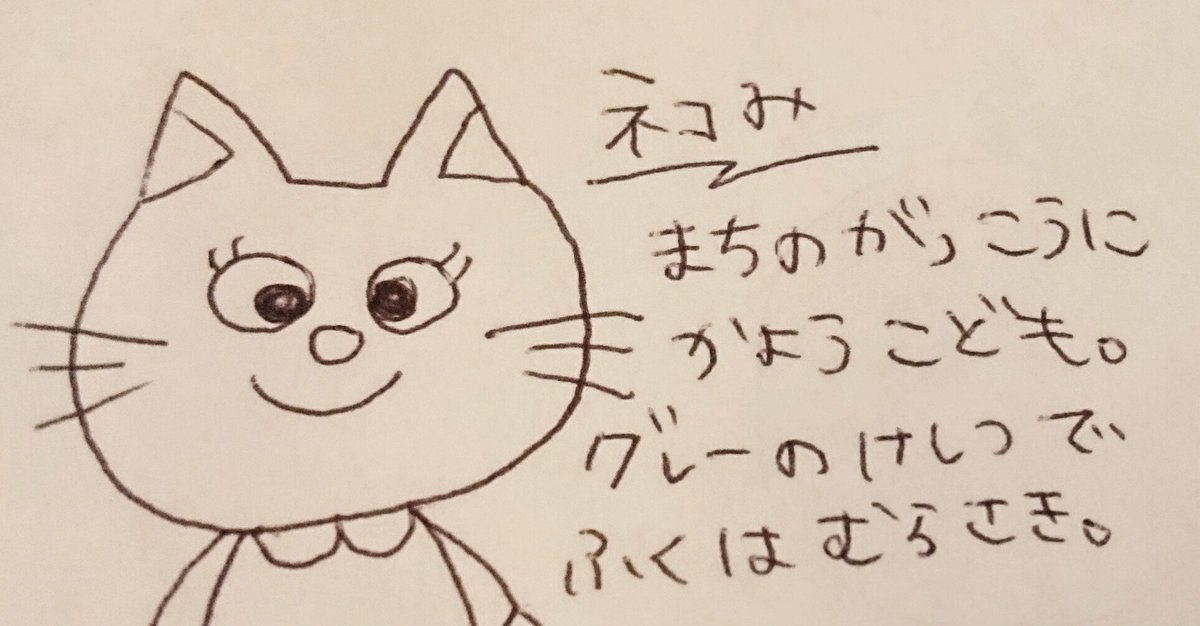 ネコみ
まちのがっこうに
かようこども。
グレーのけしつで
ふくはむらさき。